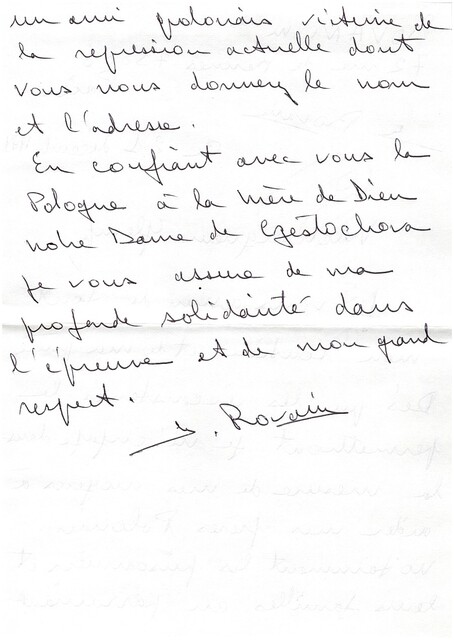 un ami polonais victime de
la repression actuelle dont
vous nous donnerez le nom
et l'adresse.
En confiant avec vous la
Pologne à la Mère de Dieu
notre Dame de Częstochova
je vous assure de ma
profonde solidarité dans
l'épreuve et de mon grand
respect.